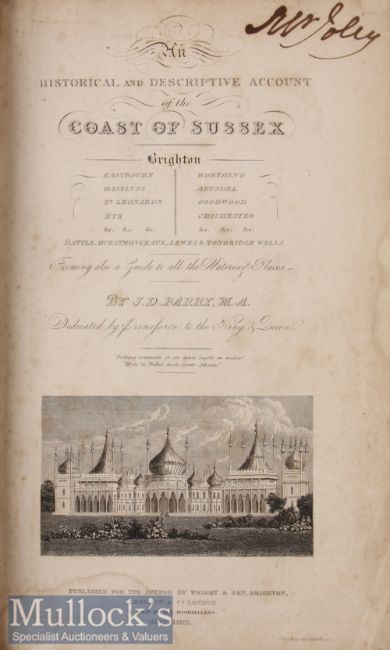 Mr Foley
An
HISTORICAL AND DESCRIPTIVE ACCOUNT
of the
COAST OF SUSSEX
Brighton
EASTBOURN WORTHING
HASTINGS ARUNDEL
St LEONARDS GOODWOOD
RYE CHICHESTER
&c. &c. &c. &c. &c. &c.
BATTLE, HURSTMONCEAUX, LEWES & TONBRIDGE WELLS
Forming also a Guide to all the Watering Places.
BY J.D. PARRY, M.A.
Dedicated by Permission to the King & Queen
"Nothing extenuate or set down aught in malice"
PUBLISHED FOR THE AUTHOR BY WRIGHT & SON, BRIGHTON,
LONDON
BOOKSELLERS,
Mullock's
Specialist Auctioneers & Valuers